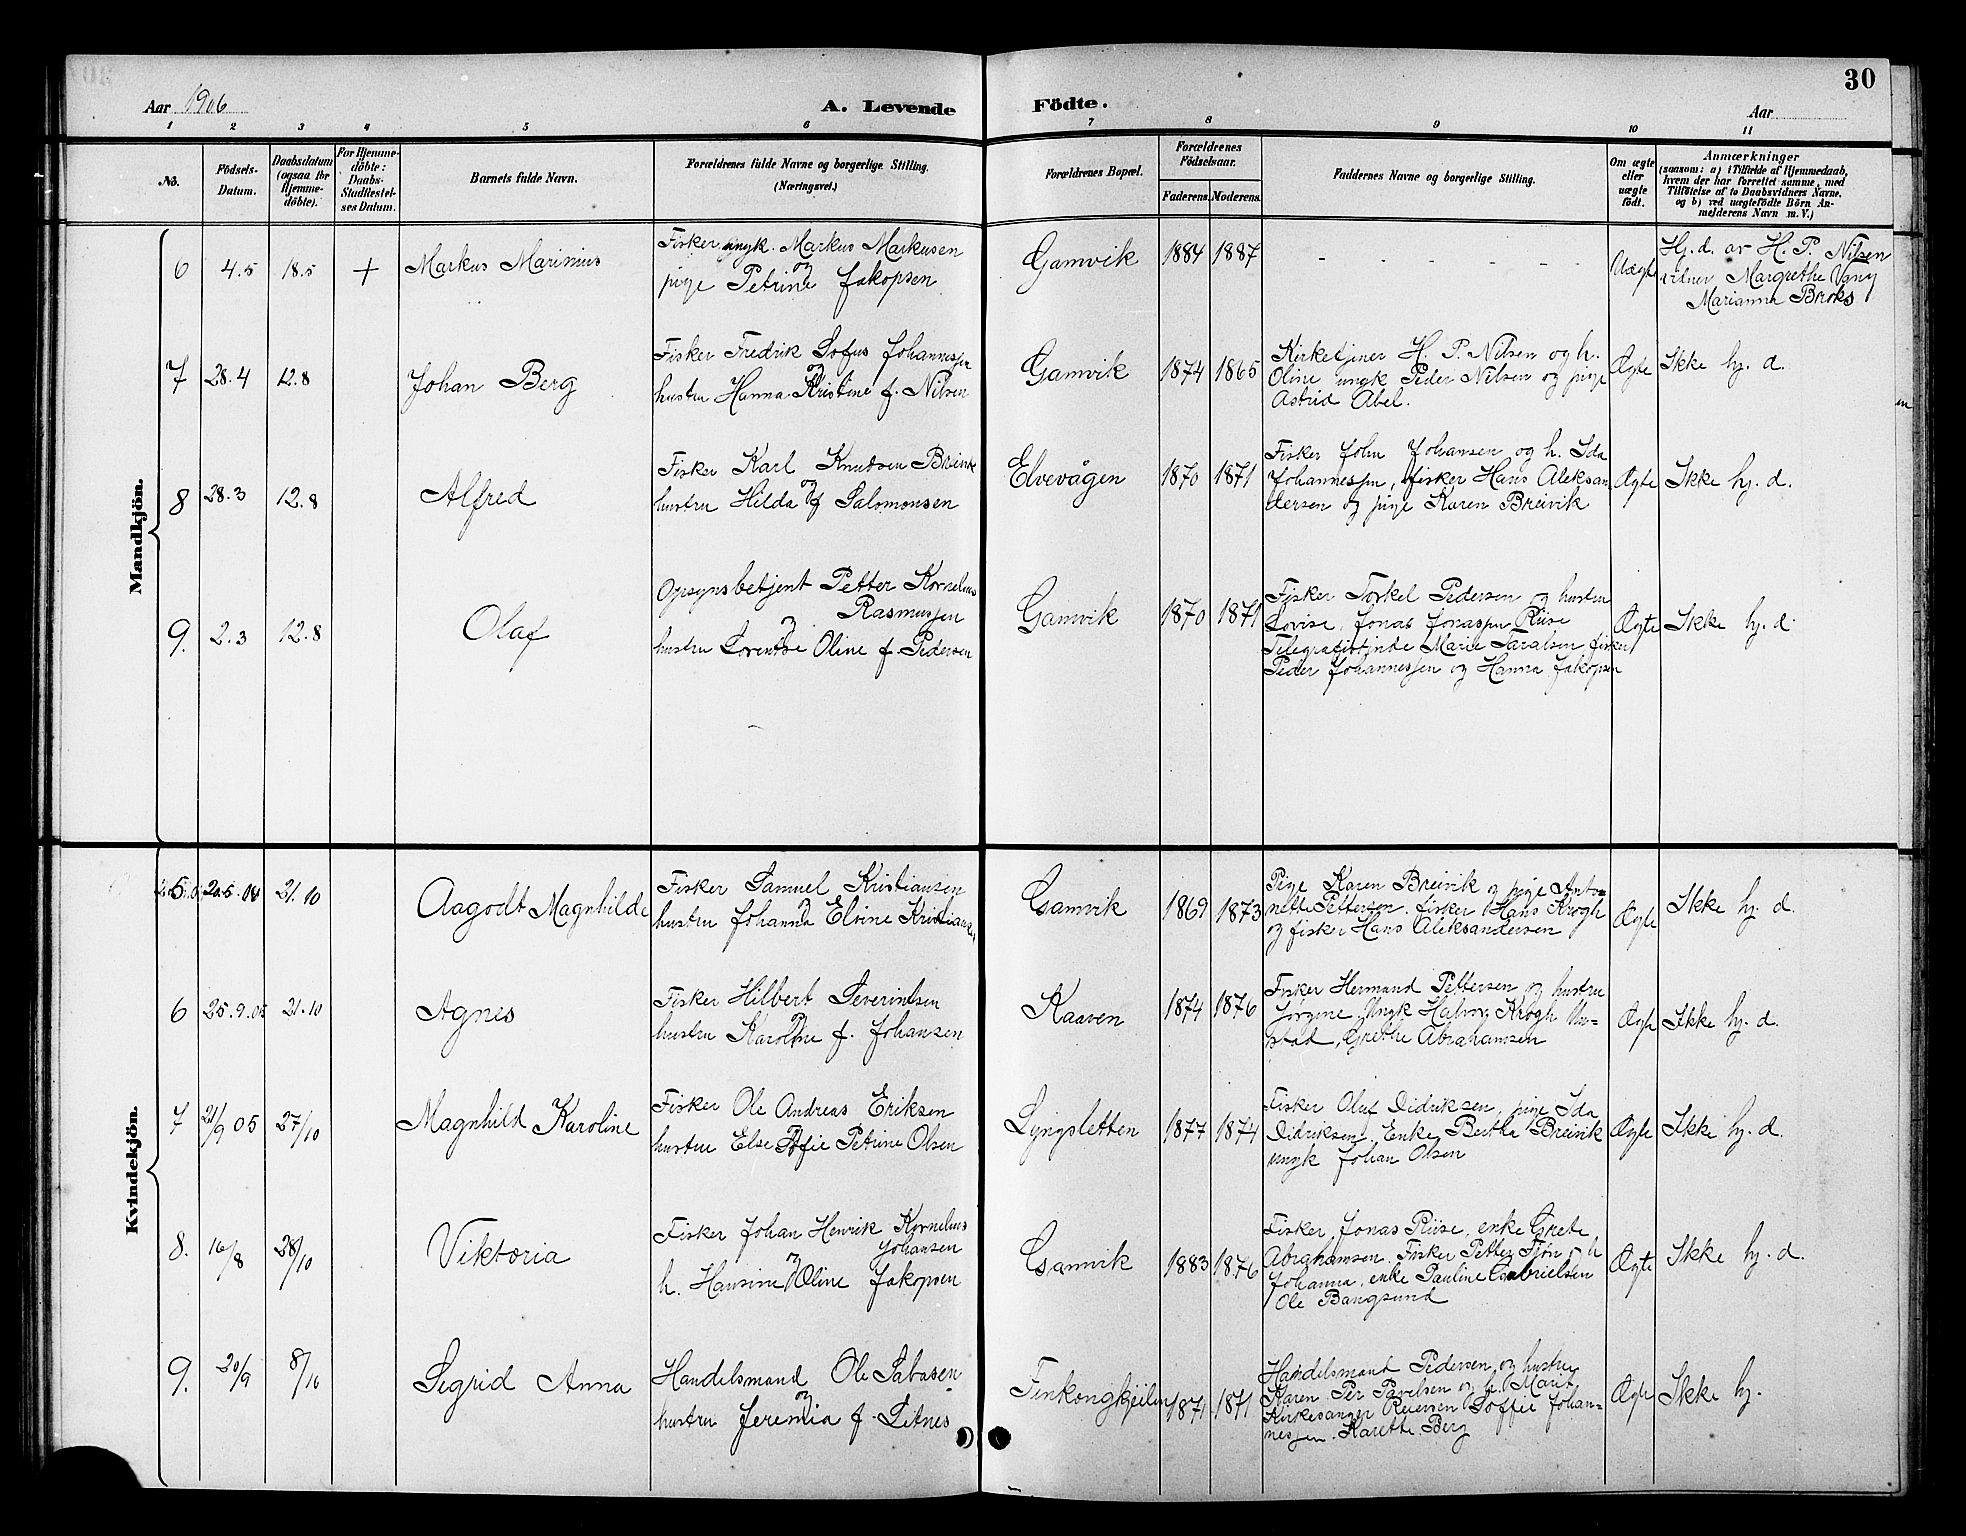 30
Aar 1906
A. Levende Födte.
Aar
1 2 3 4 5 6 7 8 9 10 11
No.
Födsels-
Datum.
Daabsdatum
(ogsaa for
Hjemme-
döbte).
For Hjemme-
döbte:
Daabs-
Stadfæstel-
ses Datum.
Barnets fulde Navn.
Forældrenes fulde Navne og borgerlige Stilling.
(Næringsvei.)
Forældrenes Bopæl.
Forældrenes
Födselsaar.
Faderens. Moderens.
Faddernes Navne og borgerlige Stilling.
Om ægte
eller
uægte
födt.
Anmærkninger
(saasom: a) i Tilfælde af Hjemmedaab,
hvem der har forrettet samme, med
Tilföielse af to Daabsvidners Navne.
og b) ved uægtefödte Börn An-
melderens Navn m. V.)
Mandkjön.
6 4.5 18.5 + Markus Marinius
Fisker ungk. Markus Markusen
og
pige Petrine Jakopsen
Gamvik 1884 1887 - - - - - -
Uægte
Hj. d. av H. P. Nilsen
vidner Margrethe Vang
Marianna Broks
7 28.4 12.8 Johan Berg
Fisker Fredrik Sofus Johannessen
og
hustru Hanna Kristine f. Nilsen
Gamvik 1874 1865
Kirketjener H. P. Nilsen og h.
Oline ungk Peder Nilsen og pige
Astrid Abel.
Ægte Ikke hj. d.
8 28.3 12.8 Alfred
Fisker Karl Knutsen Breivik
og
hustru Hilda f Salomonsen
Elvevågen 1870 1871
Fisker John Johansen og h. Ida
Johannessen, fisker Hans Aleksan
dersen og pige Karen Breivik
Ægte Ikke hj. d.
9. 2.3 12.8 Olaf
Opsynsbetjent Petter Kornelius
Rasmussen
og
hustru Lorentse Oline f. Pedersen
Gamvik 1870 1871
Fisker Torkel Pedersen og hustru
Lovise, Jonas Jonassen Riise
Telegrafistinde Marie Taralsen fisker
Peder Johannessen og Hanna Jakopsen
Ægte Ikke hj. d.
Kvindekjön.
5 21.10 Aagodt Magnhilde
Fisker Samuel Kristiansen
og
hustru Johanna Elvine Kristiansen
Gamvik 1869 1873
Pige Karen Breivik og pige Anto-
nette Pettersen. fisker Hans Krogh
og fisker Hans Aleksandersen
Ægte Ikke hj. d.
6 25.9.05 21.10 Agnes
Fisker Hilbert Severinsen
og
hustru Karoline f. Johansen
Kaaven 1874 1876
Fisker Hermand Pettersen og hustru
Jørgine, Ungk Halvor Krogh
Grethe Abrahamsen
Ægte Ikke hj. d.
7 21/9 05 27/10 Magnhild Karoline
Fisker Ole Andreas Eriksen
og
hustru Else Sofie Petrine Olsen
Lyngsletten 1877 1874
Fisker Oluf Didriksen, pige Ida
Didriksen. Enke Berthe Breivik
ungk Johan Olsen
Ægte Ikke hj. d.
8. 16/8 28/10 Viktoria
Fisker Johan Henrik Kornelius
Johansen
og
h. Hansine Oline Jakopsen
Gamvik 1883 1876
Fisker Jonas Riise, enke Grete
Abrahamsen. Fisker Petter h
Johanna, enke Pauline Gabrielsen
Ole Bangsund
Ægte Ikke hj. d.
9. 20/9 8/10 Sigrid Anna
Handelsmand Ole Sabasen
og
hustru Jeremia f. Litnes
Finkongkjeilen 1871 1871
Handelsmand Pedersen og hustru
Karen Per Pavelsen og h. Marit
Kirkesanger Reiersen Soffie Johan-
nessen. Karette Berg
Ægte Ikke hj.